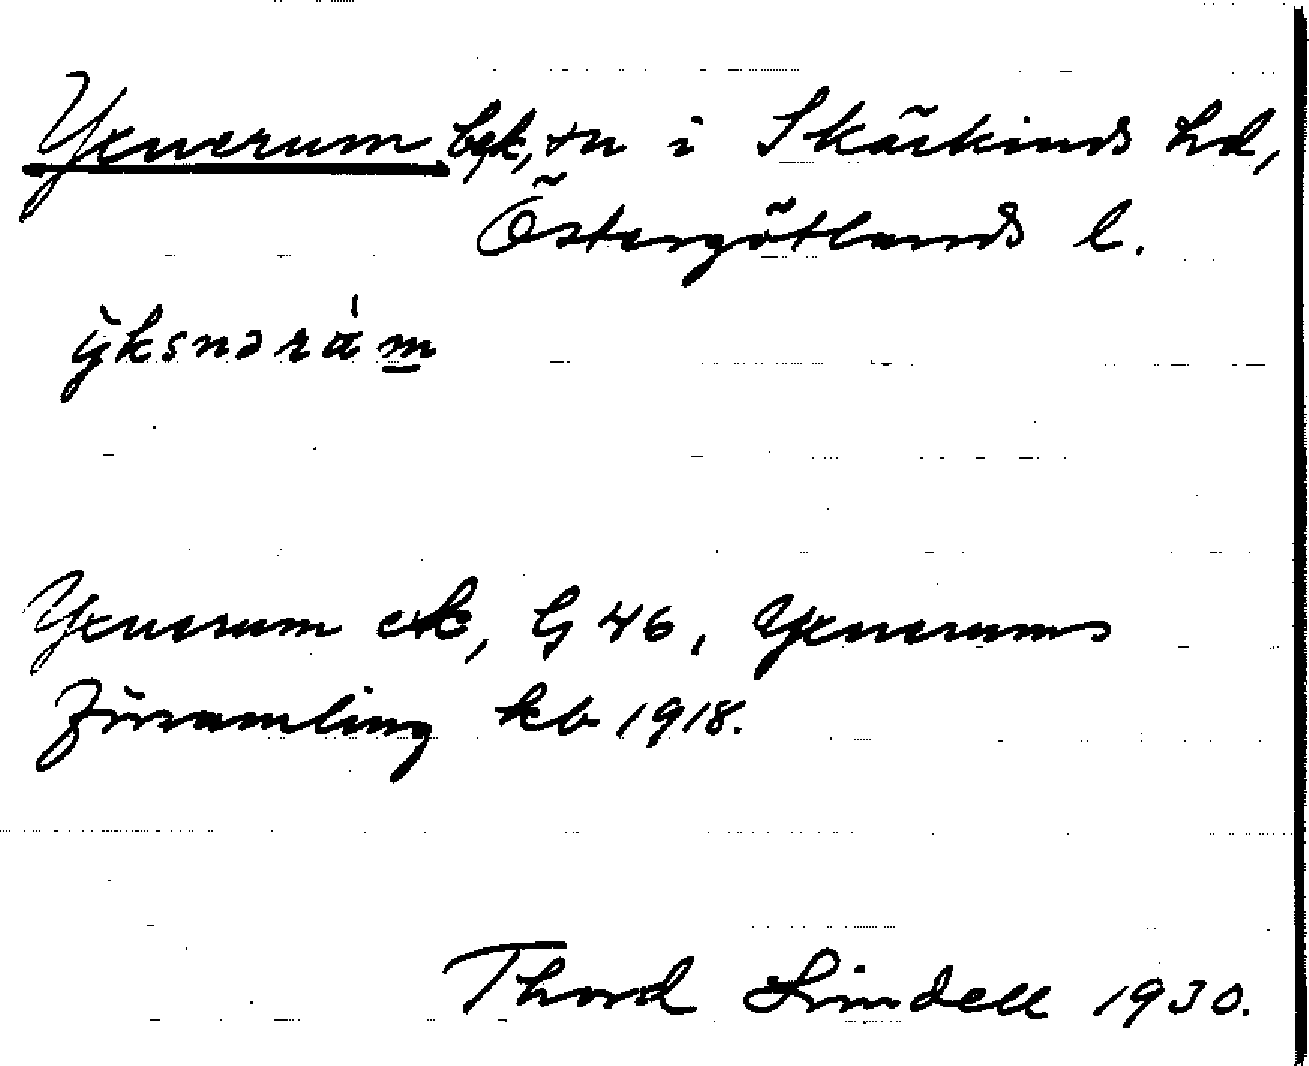 Yxnerum bgk, sn i Skärkinds hd,
Östergötlands l.
ỳksnərám
Yxnerum ek, G 46, Yxnerums
församling kb 1918.
Thord Lindell 1930.